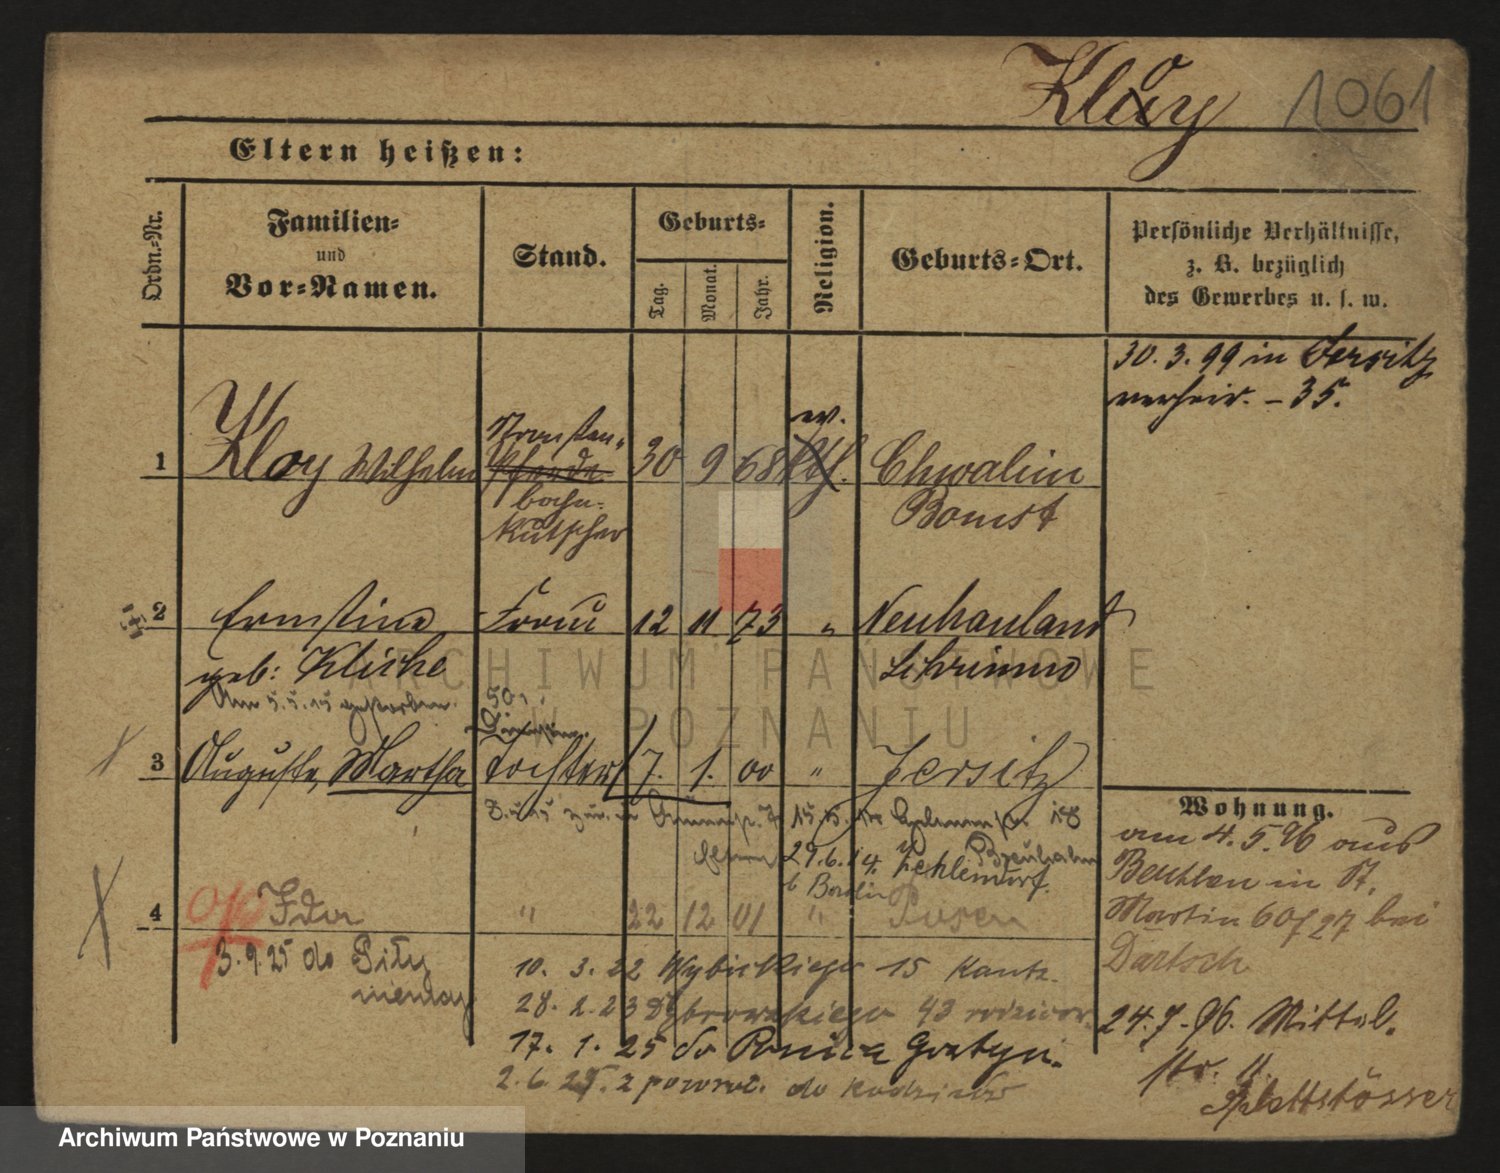 Kloy 1061
Eltern heißen:
Ordn.-Nr.
Familien- und Vor-Namen.
Stand.
Geburts-
Tag. Monat. Jahr.
Religion.
Geburts-Ort.
Persönliche Verhältnisse,
z. B. bezüglich
des Gewerbes u. s. w.
30. 3. 99 in Jersitz
verheir. - 35.
ev.
1 Kloy Wilhelm Pferde- 30 9 68 kth. Chwalim
bahn- Bomst
kutscher
2 Ernstine Frau 12 11 73 " Neuhauland
geb: Klische Schrimm
Am 5.5.15 gestorben.
3 Auguste, Martha Tochter 7. 1. 00 " Jersitz
29.6.14 Zehlendorf
b Berlin
4 Ida " 22 12 01 " Posen
3. 9. 25 do
10. 3. 22 Wybickiego 15
28. 2. 23 Dąbrowskiego 43
17. 1. 25 do
2. 6. 25. z powrot. do
Wohnung.
am 4. 5. 96 aus
Beuthen in St.
Martin 60/27 bei
Bartsch
24. 7. 96. Mittel-
str. 11.
Plettstösser
ARCHIWUM PAŃSTWOWE
W POZNANIU
Archiwum Państwowe w Poznaniu